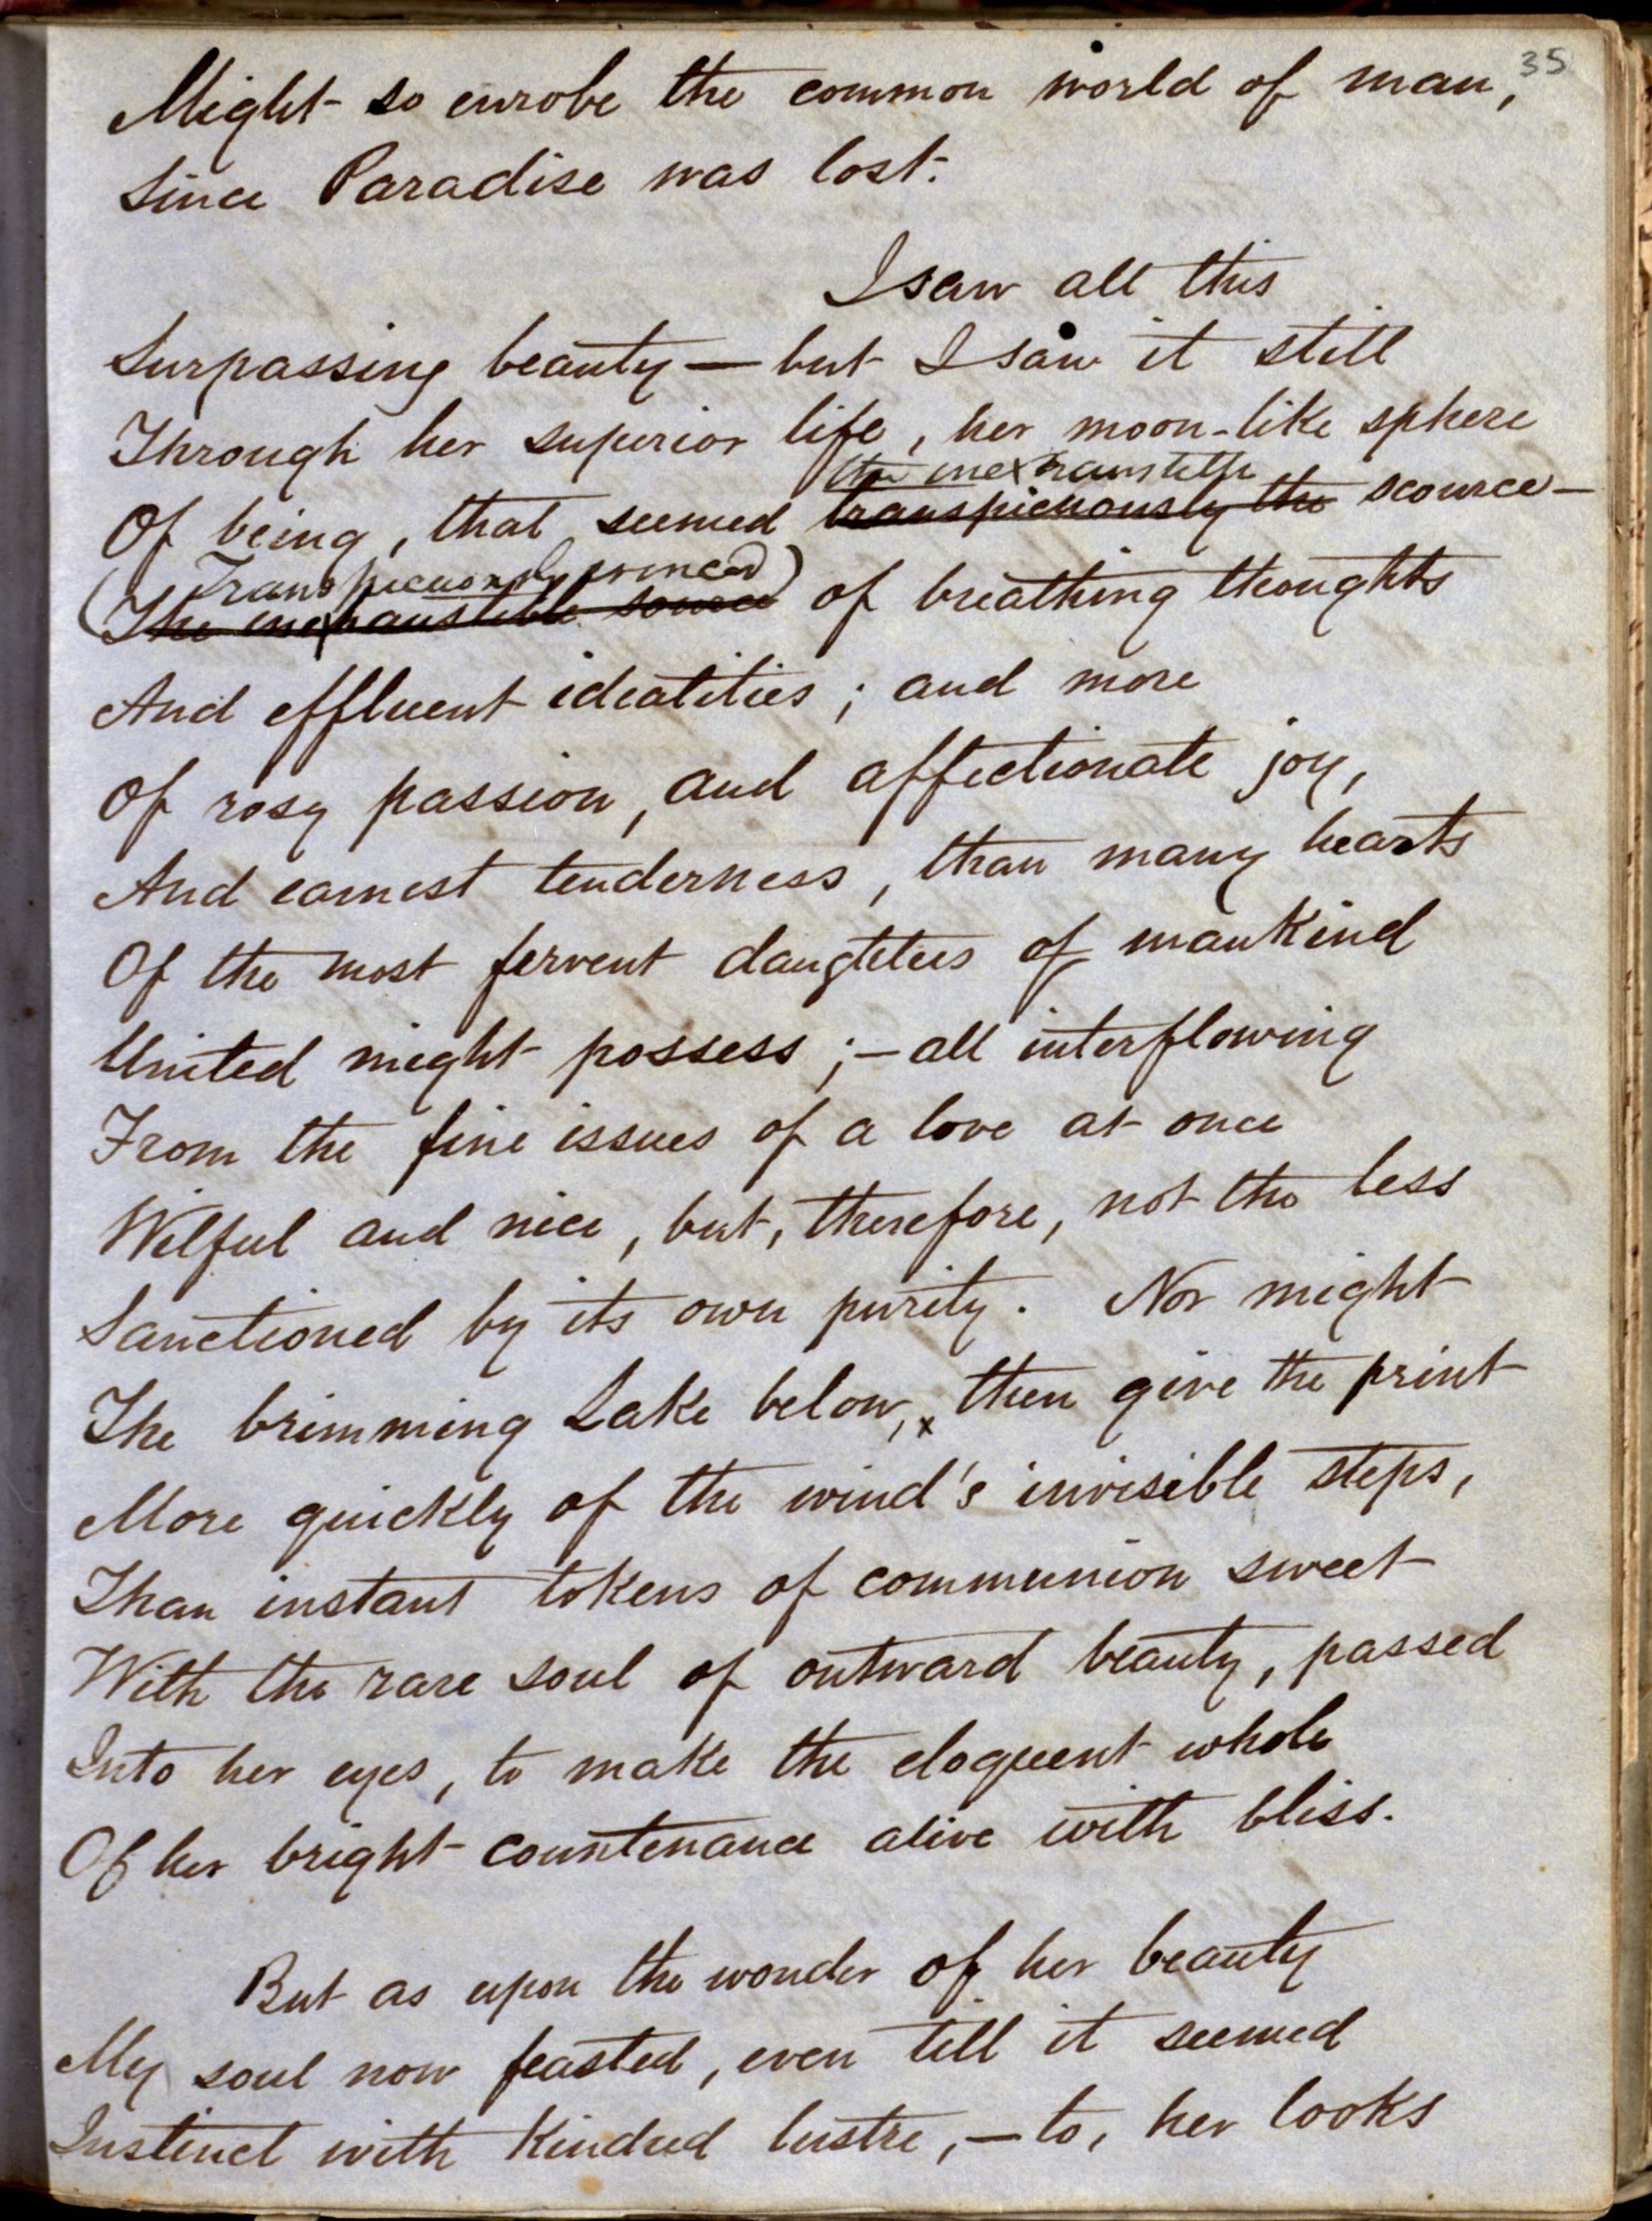 35
Might so enrobe the common world of man,
Since Paradise was lost.
I saw all this
Surpassing beauty — but I saw it still
Through her superior life, her moon-like sphere
the inexhaustible
Of being, that seemed transpicuously the scource —
(Transpicuously evinced)
The inexhaustible source of breathing thoughts
And effluent idealities; and more
Of rosy passion, and affectionate joy,
And earnest tenderness, than many hearts
Of the most fervent daughters of mankind
United might possess; — all interflowing
From the fine issues of a love at once
Wilful and nice, but, therefore, not the less
Sanctioned by its own purity. Nor might
The brimming Lake below, x then give the print
More quickly of the wind's invisible steps,
Than instant tokens of communion sweet
With the rare soul of outward beauty, passed
Into her eyes, to make the eloquent whole
Of her bright countenance alive with bliss.
But as upon the wonder of her beauty
My soul now feasted, even till it seemed
Instinct with kindred lustre, — lo, her looks